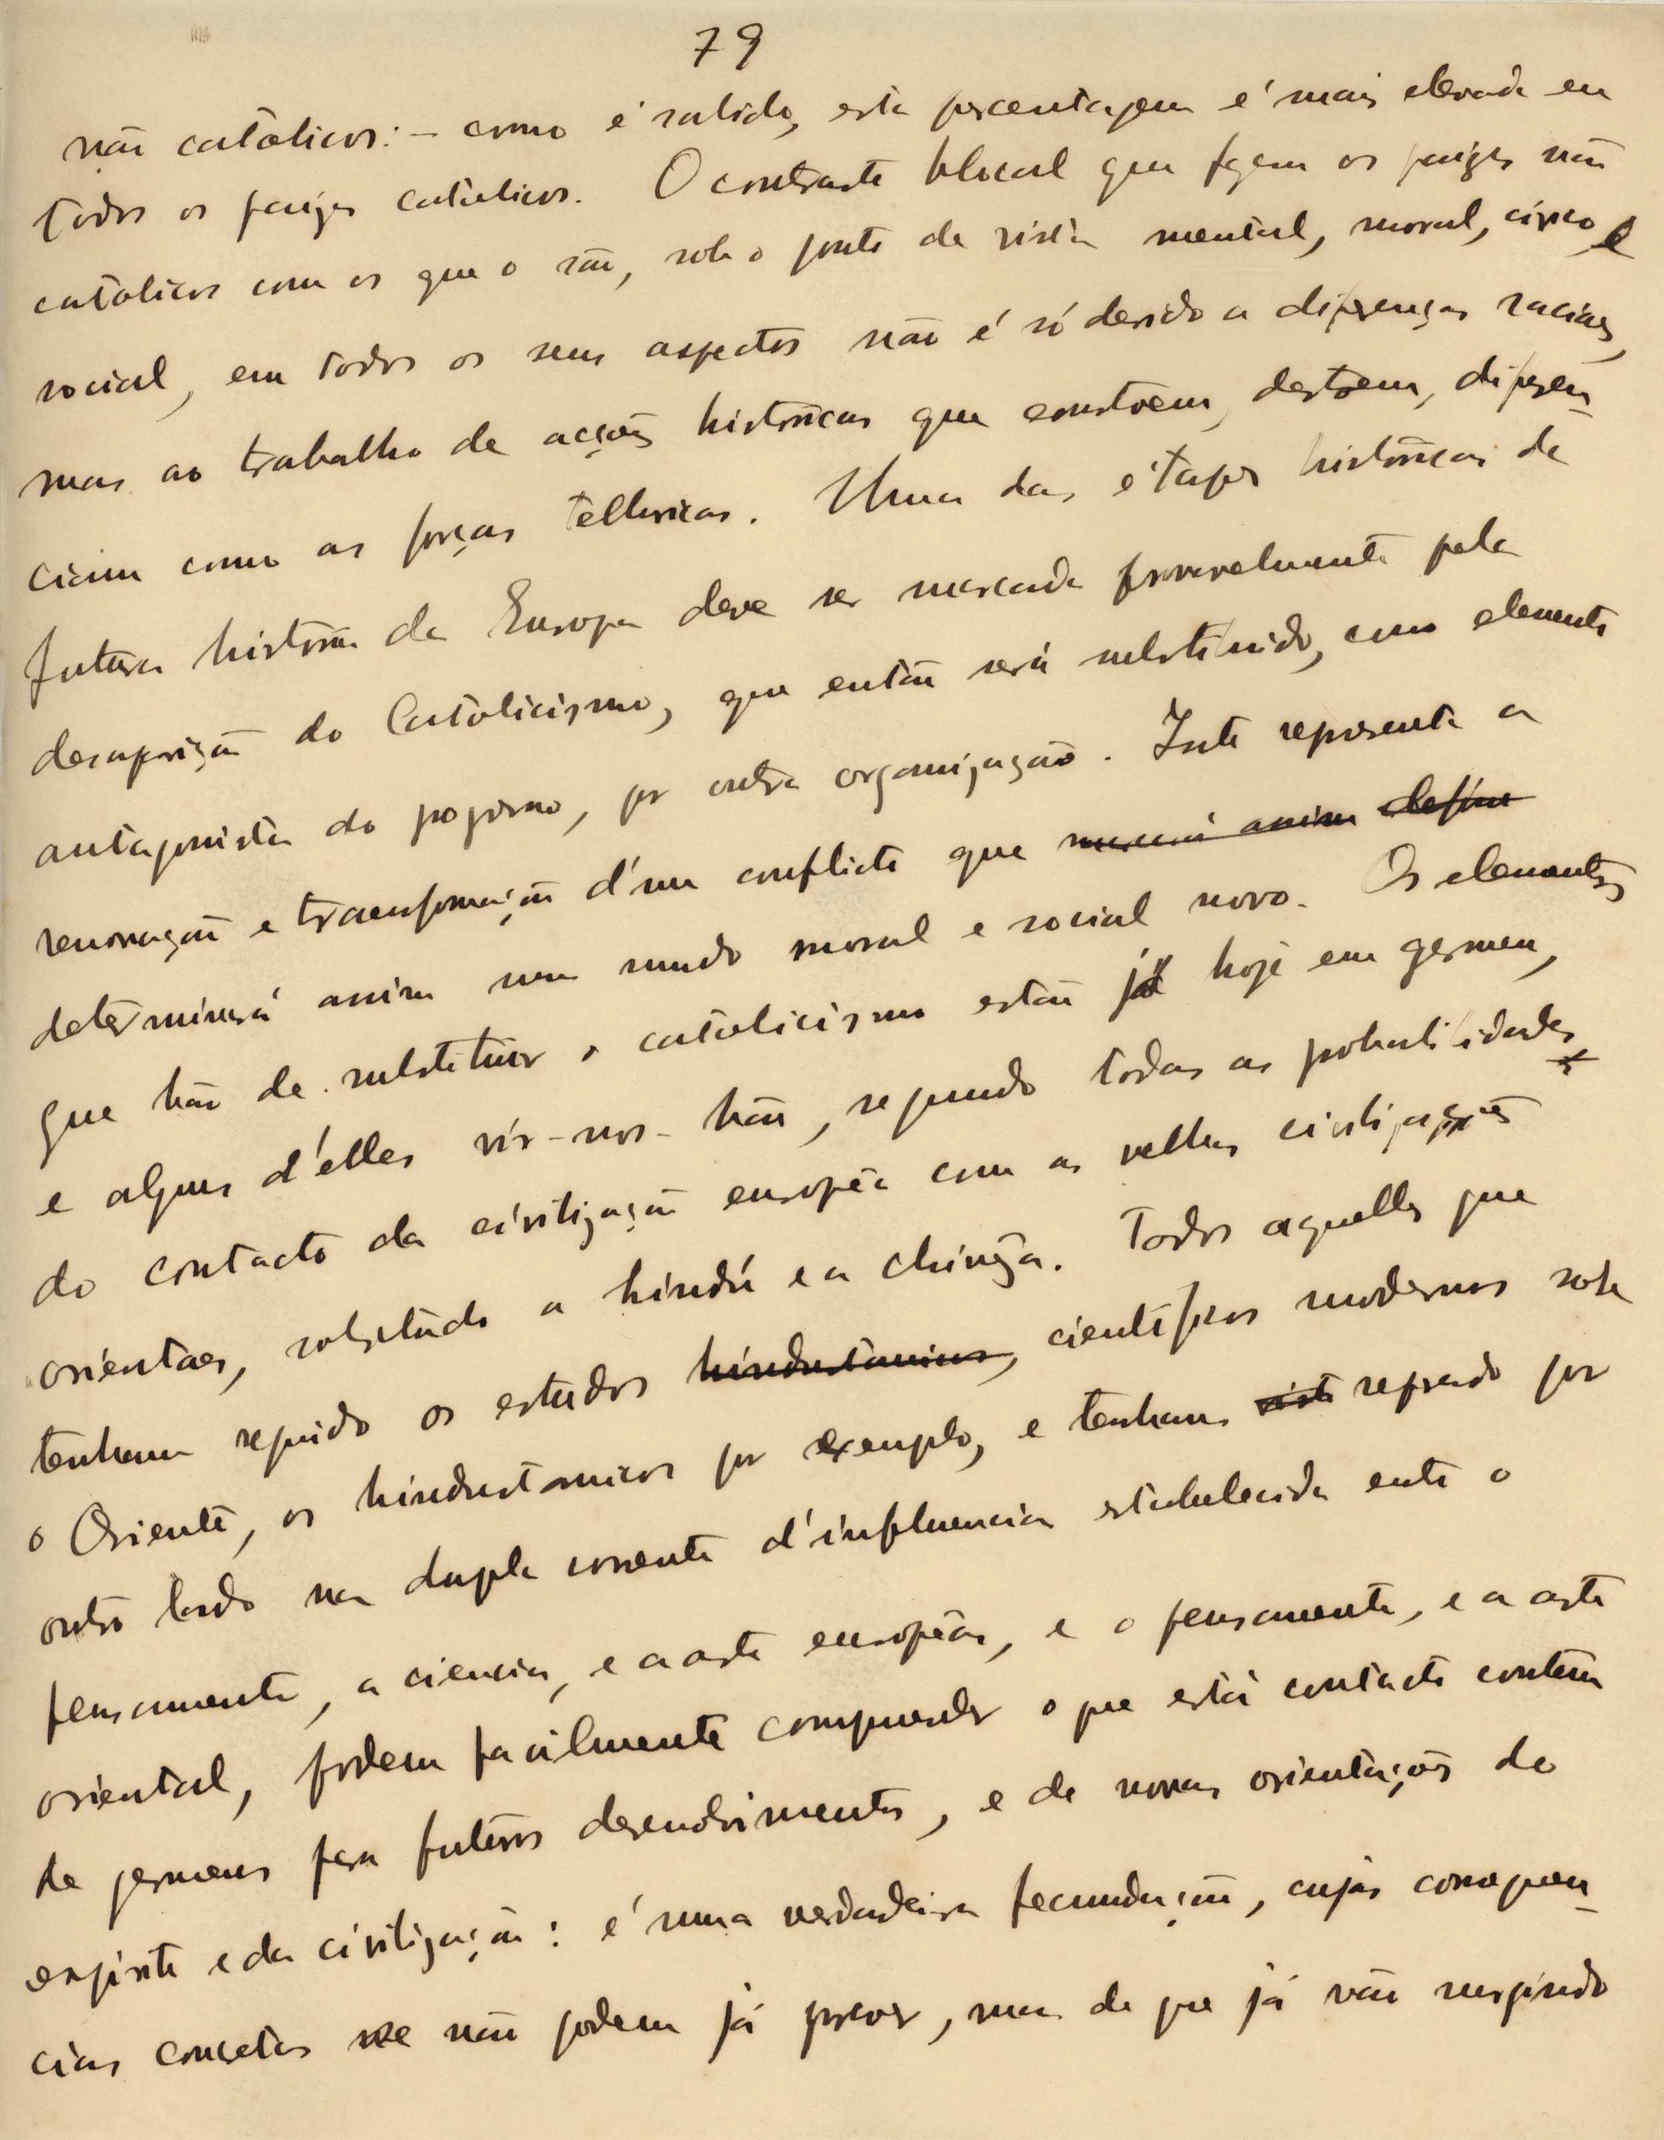 79
não catolicos: — como é sabido, esta percentagem é mais elevada em
todos os paizes catolicos. O contraste que fazem os paizes não
catolicos com os que o são, sob o ponto de vista mental, moral, civico e
social, em todos os seus aspectos não é só devido a diferenças raciaes,
mas ao trabalho de acções historicas que constroem, destroem, diferen-
ciam como as forças telluricas. Uma das étapes historicas da
futura historia da Europa deve ser marcada provavelmente pela
desaparição do Catolicismo, que então será substituido, como elemento
antagonista do pogresso, por outra organização. Isto representa a
renovação e transformação d'um conflicto que marcará assim define
determinará assim um mundo moral e social novo. Os elementos
que hão de substituir o catolicismo estão já hoje em germen,
e alguns d'elles vir-nos-hão, segundo todas as probabilidades,
do contacto da civilização européa com as velhas civilizações
orientaes, sobretudo a hindú e a chinêza. Todos aquelles que
tenham seguido os estudos hindustanicos, cientificos modernos sobre
o Oriente, os hindustanicos por exemplo, e tenham visto reparado por
outro lado na dupla corrente d'influencia estabelecida entre o
pensamento, a ciencia, e a arte européas, e o pensamento, e a arte
oriental, podem facilmente comprender o que está contacto contém
de germens para futuros desenvolvimentos, e de novas orientações do
espirito e da civilização: é uma verdadeira fecundação, cujas consequen-
cias concretas se não podem já prever, mas de que já vão surgindo